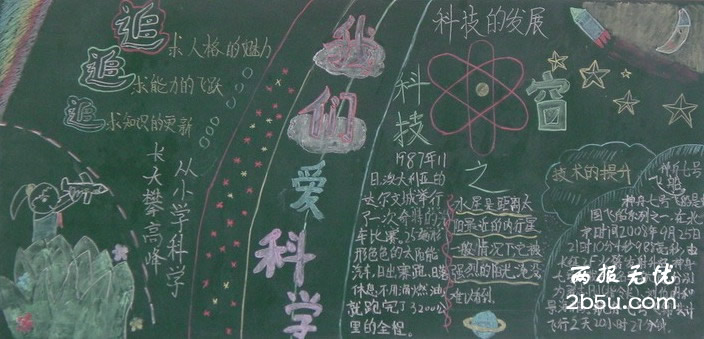 追求人格的魅力
追求能力的飞跃
追求知识的更新
从小学科学
长大攀高峰
我们爱科学
科技的发展
科技之窗
1987年11
日,澳大利亚的
达尔文城举行
了一次奇特的汽
车比赛。25辆形
形色色的太阳能
汽车,日出赛跑,日落
休息,不用滴燃油,
就跑完了3200公
里的全程。
水星是距离太
阳最近的内行星
一般情况下它被
强烈的阳光淹没
难以看到
技术的提升
神舟七号
飞船
神舟七号飞船是
国飞船系列之一,在北
京时间2008年9月25日
21时10分4秒988毫秒,由
飞行2天20小时27分钟。
两报无忧
2b5u.com